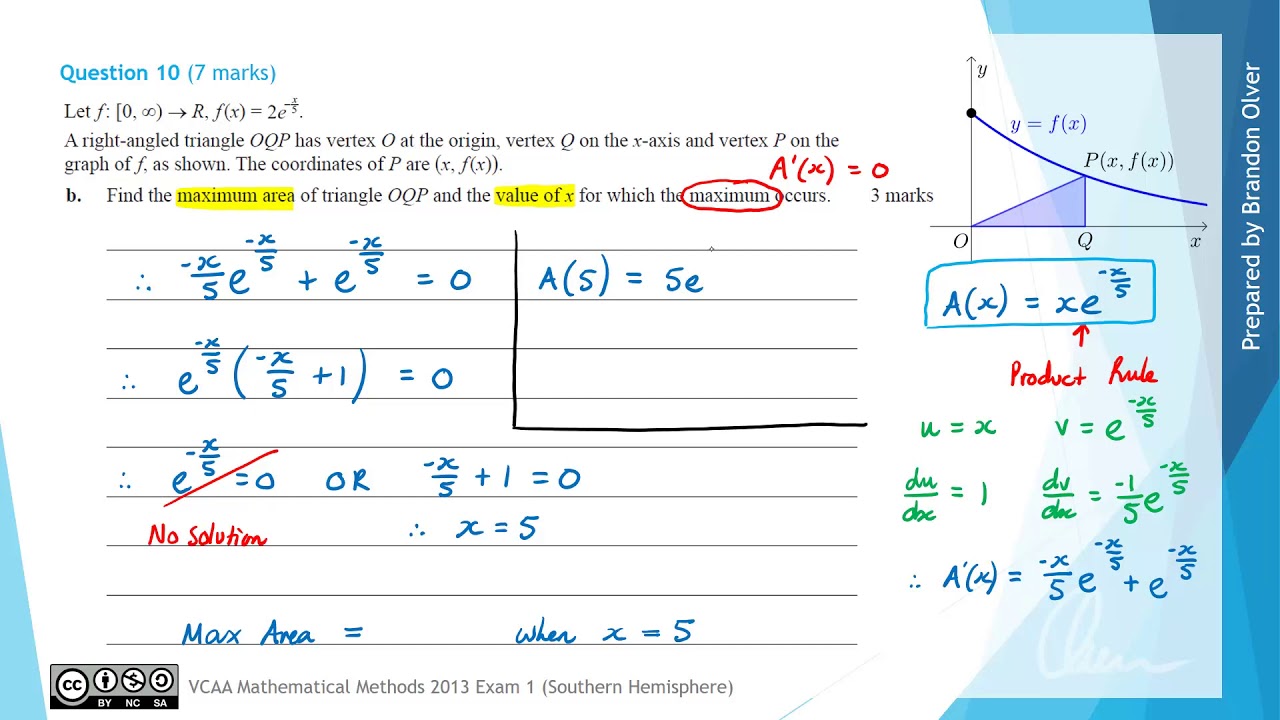 Question 10 (7 marks)
Let f: [0, ∞) → R, f(x) = 2e^(-x/5).
A right-angled triangle OQP has vertex O at the origin, vertex Q on the x-axis and vertex P on the
graph of f, as shown. The coordinates of P are (x, f(x)).
A'(x) = 0
b. Find the maximum area of triangle OQP and the value of x for which the maximum occurs. 3 marks
∴ -x/5 e^(-x/5) + e^(-x/5) = 0
∴ e^(-x/5) (-x/5 + 1) = 0
∴ e^(-x/5) = 0 OR -x/5 + 1 = 0
No solution
∴ x = 5
Max Area = when x = 5
A(5) = 5e
y
y = f(x)
P(x, f(x))
O Q x
A(x) = xe^(-x/5)
↑
Product Rule
u = x v = e^(-x/5)
du/dx = 1 dv/dx = -1/5 e^(-x/5)
∴ A'(x) = -x/5 e^(-x/5) + e^(-x/5)
Prepared by Brandon Olver
cc BY NC SA
VCAA Mathematical Methods 2013 Exam 1 (Southern Hemisphere)